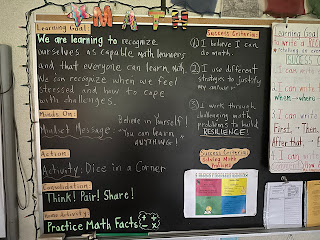 MATH
Learning Goal:
We are learning to recognize
ourselves as capable math learners
and that everyone can learn math.
We can recognize when we feel
stressed and how to cope
with challenges.
Minds On:
Mindset Message:
Believe in Yourself!
You can learn
ANYTHING!
Action
Activity: Dice in a Corner
Consolidation
Think! Pair! Share!
Home Activity
Practice Math Facts
Success Criteria:
1 I believe I can
do math.
2 I use different
strategies to justify
my answer.
3 I work through
challenging math
problems to build
RESILIENCE!
Success Criteria:
Solving Math
Problems
Learning Goal
to write a
I can write
when - where
I can write
First, Then
After that,
I can write